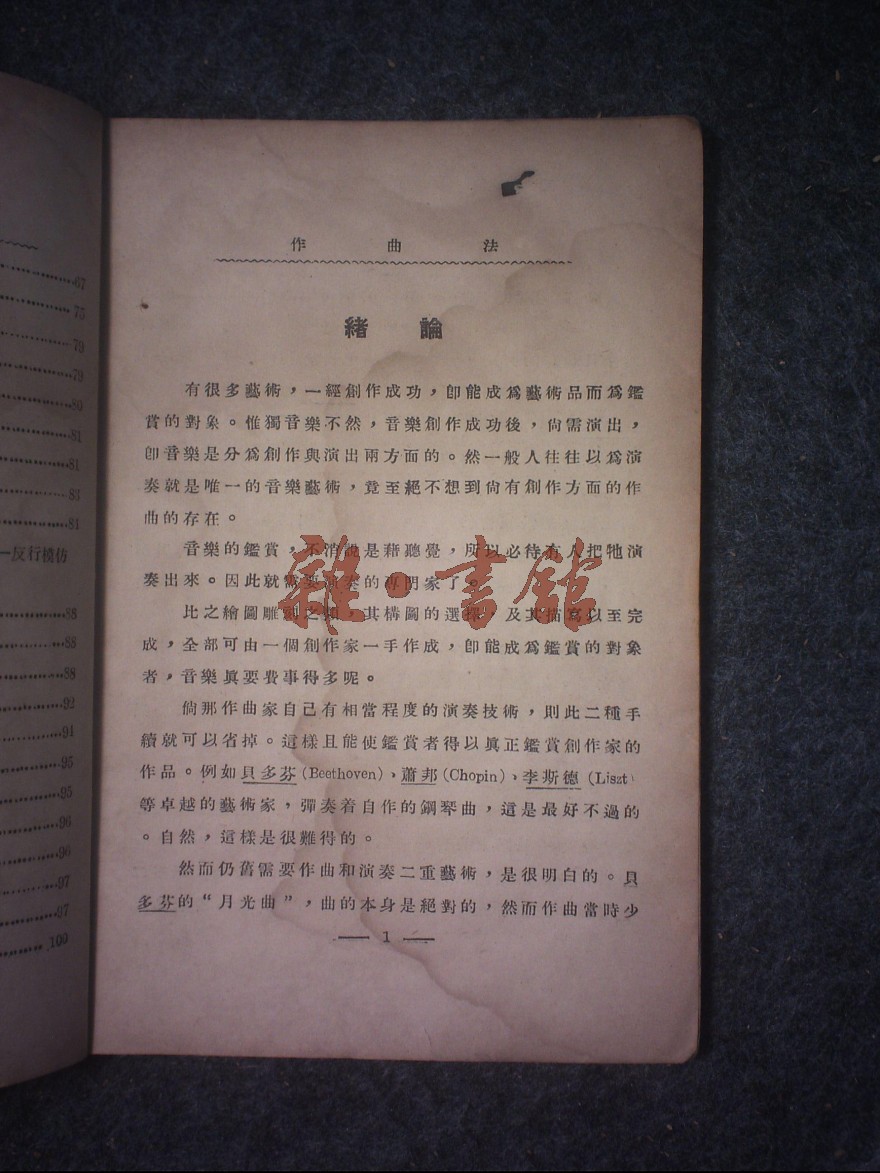 67
75
79
79
80
81
81
83
81
反行模仿
88
88
88
92
94
95
95
96
96
97
97
100
作曲法
緒論
有很多藝術，一經創作成功，卽能成爲藝術品而爲鑑
賞的對象。惟獨音樂不然，音樂創作成功後，尙需演出，
卽音樂是分爲創作與演出兩方面的。然一般人往往以爲演
奏就是唯一的音樂藝術，竟至絕不想到尙有創作方面的作
曲的存在。
音樂的鑑賞，不消說是藉聽覺，所以必待有人把牠演
奏出來。因此就需要演奏的專門家了。
比之繪圖雕刻之類，其構圖的選擇，及其描寫以至完
成，全部可由一個創作家一手作成，卽能成爲鑑賞的對象
者，音樂眞要費事得多呢。
倘那作曲家自己有相當程度的演奏技術，則此二種手
續就可以省掉。這樣且能使鑑賞者得以眞正鑑賞創作家的
作品。例如貝多芬(Beethoven)、蕭邦(Chopin)、李斯德(Liszt)
等卓越的藝術家，彈奏着自作的鋼琴曲，這是最好不過的
。自然，這樣是很難得的。
然而仍舊需要作曲和演奏二重藝術，是很明白的。貝
多芬的“月光曲”，曲的本身是絕對的，然而作曲當時少
— 1 —
雜·書館